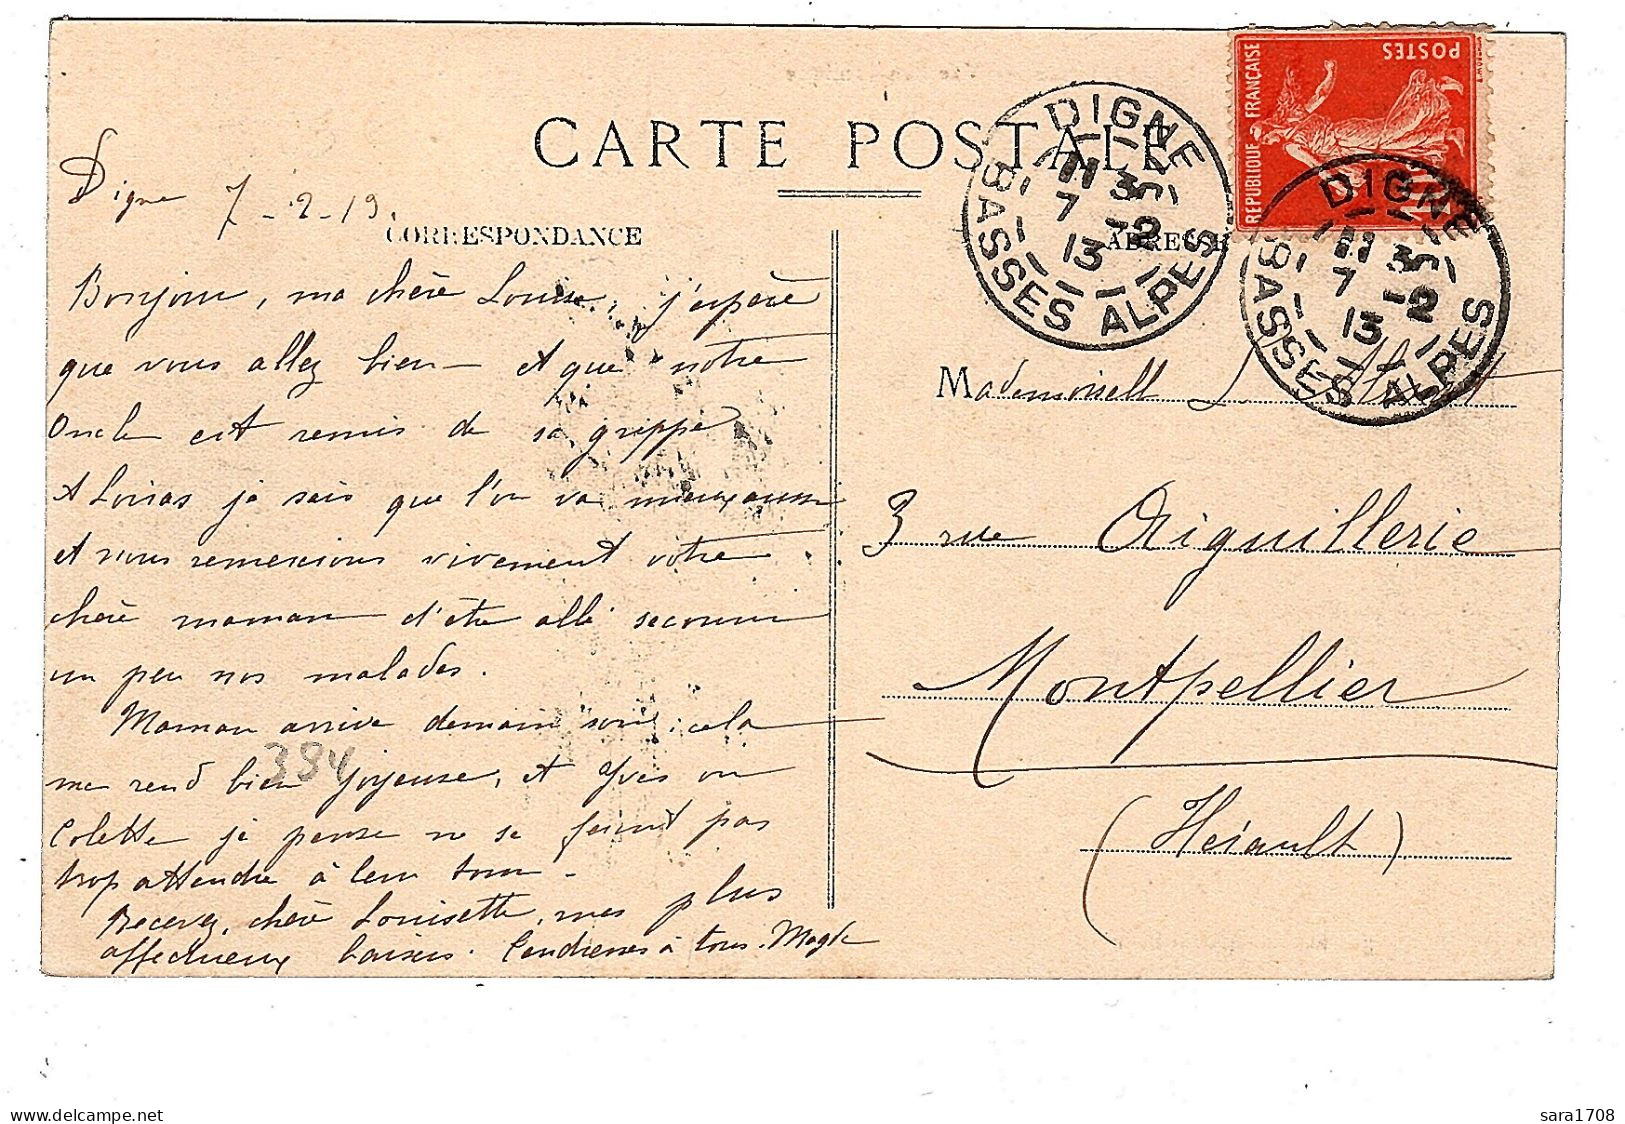 CARTE POSTALE
Digne 7-2-19.
CORRESPONDANCE
Bonjour, ma chère Louise, j'espère
que vous allez bien – et que notre
Oncle est remis de sa grippe
A Lorias je sais que l'on va mieux aussi
et nous remercions vivement votre
chère maman d'être allé secourir
un peu nos malades.
Maman arrive demain soir; cela
me rend bien joyeuse, et Yves ou
Colette je pense ne se feront pas
trop attendre à leur tour –
Recevez, chère Louisette, mes plus
affectueux baisers. Tendresses à tous. Magde
394
ADRESSE
Mademoiselle L.
3 rue Aiguillerie
Montpellier
(Hérault)
REPUBLIQUE FRANÇAISE
POSTES
DIGNE
11 35
7 -2
13
BASSES ALPES
DIGNE
11 35
7 -2
13
BASSES ALPES
www.delcampe.net
sara1708